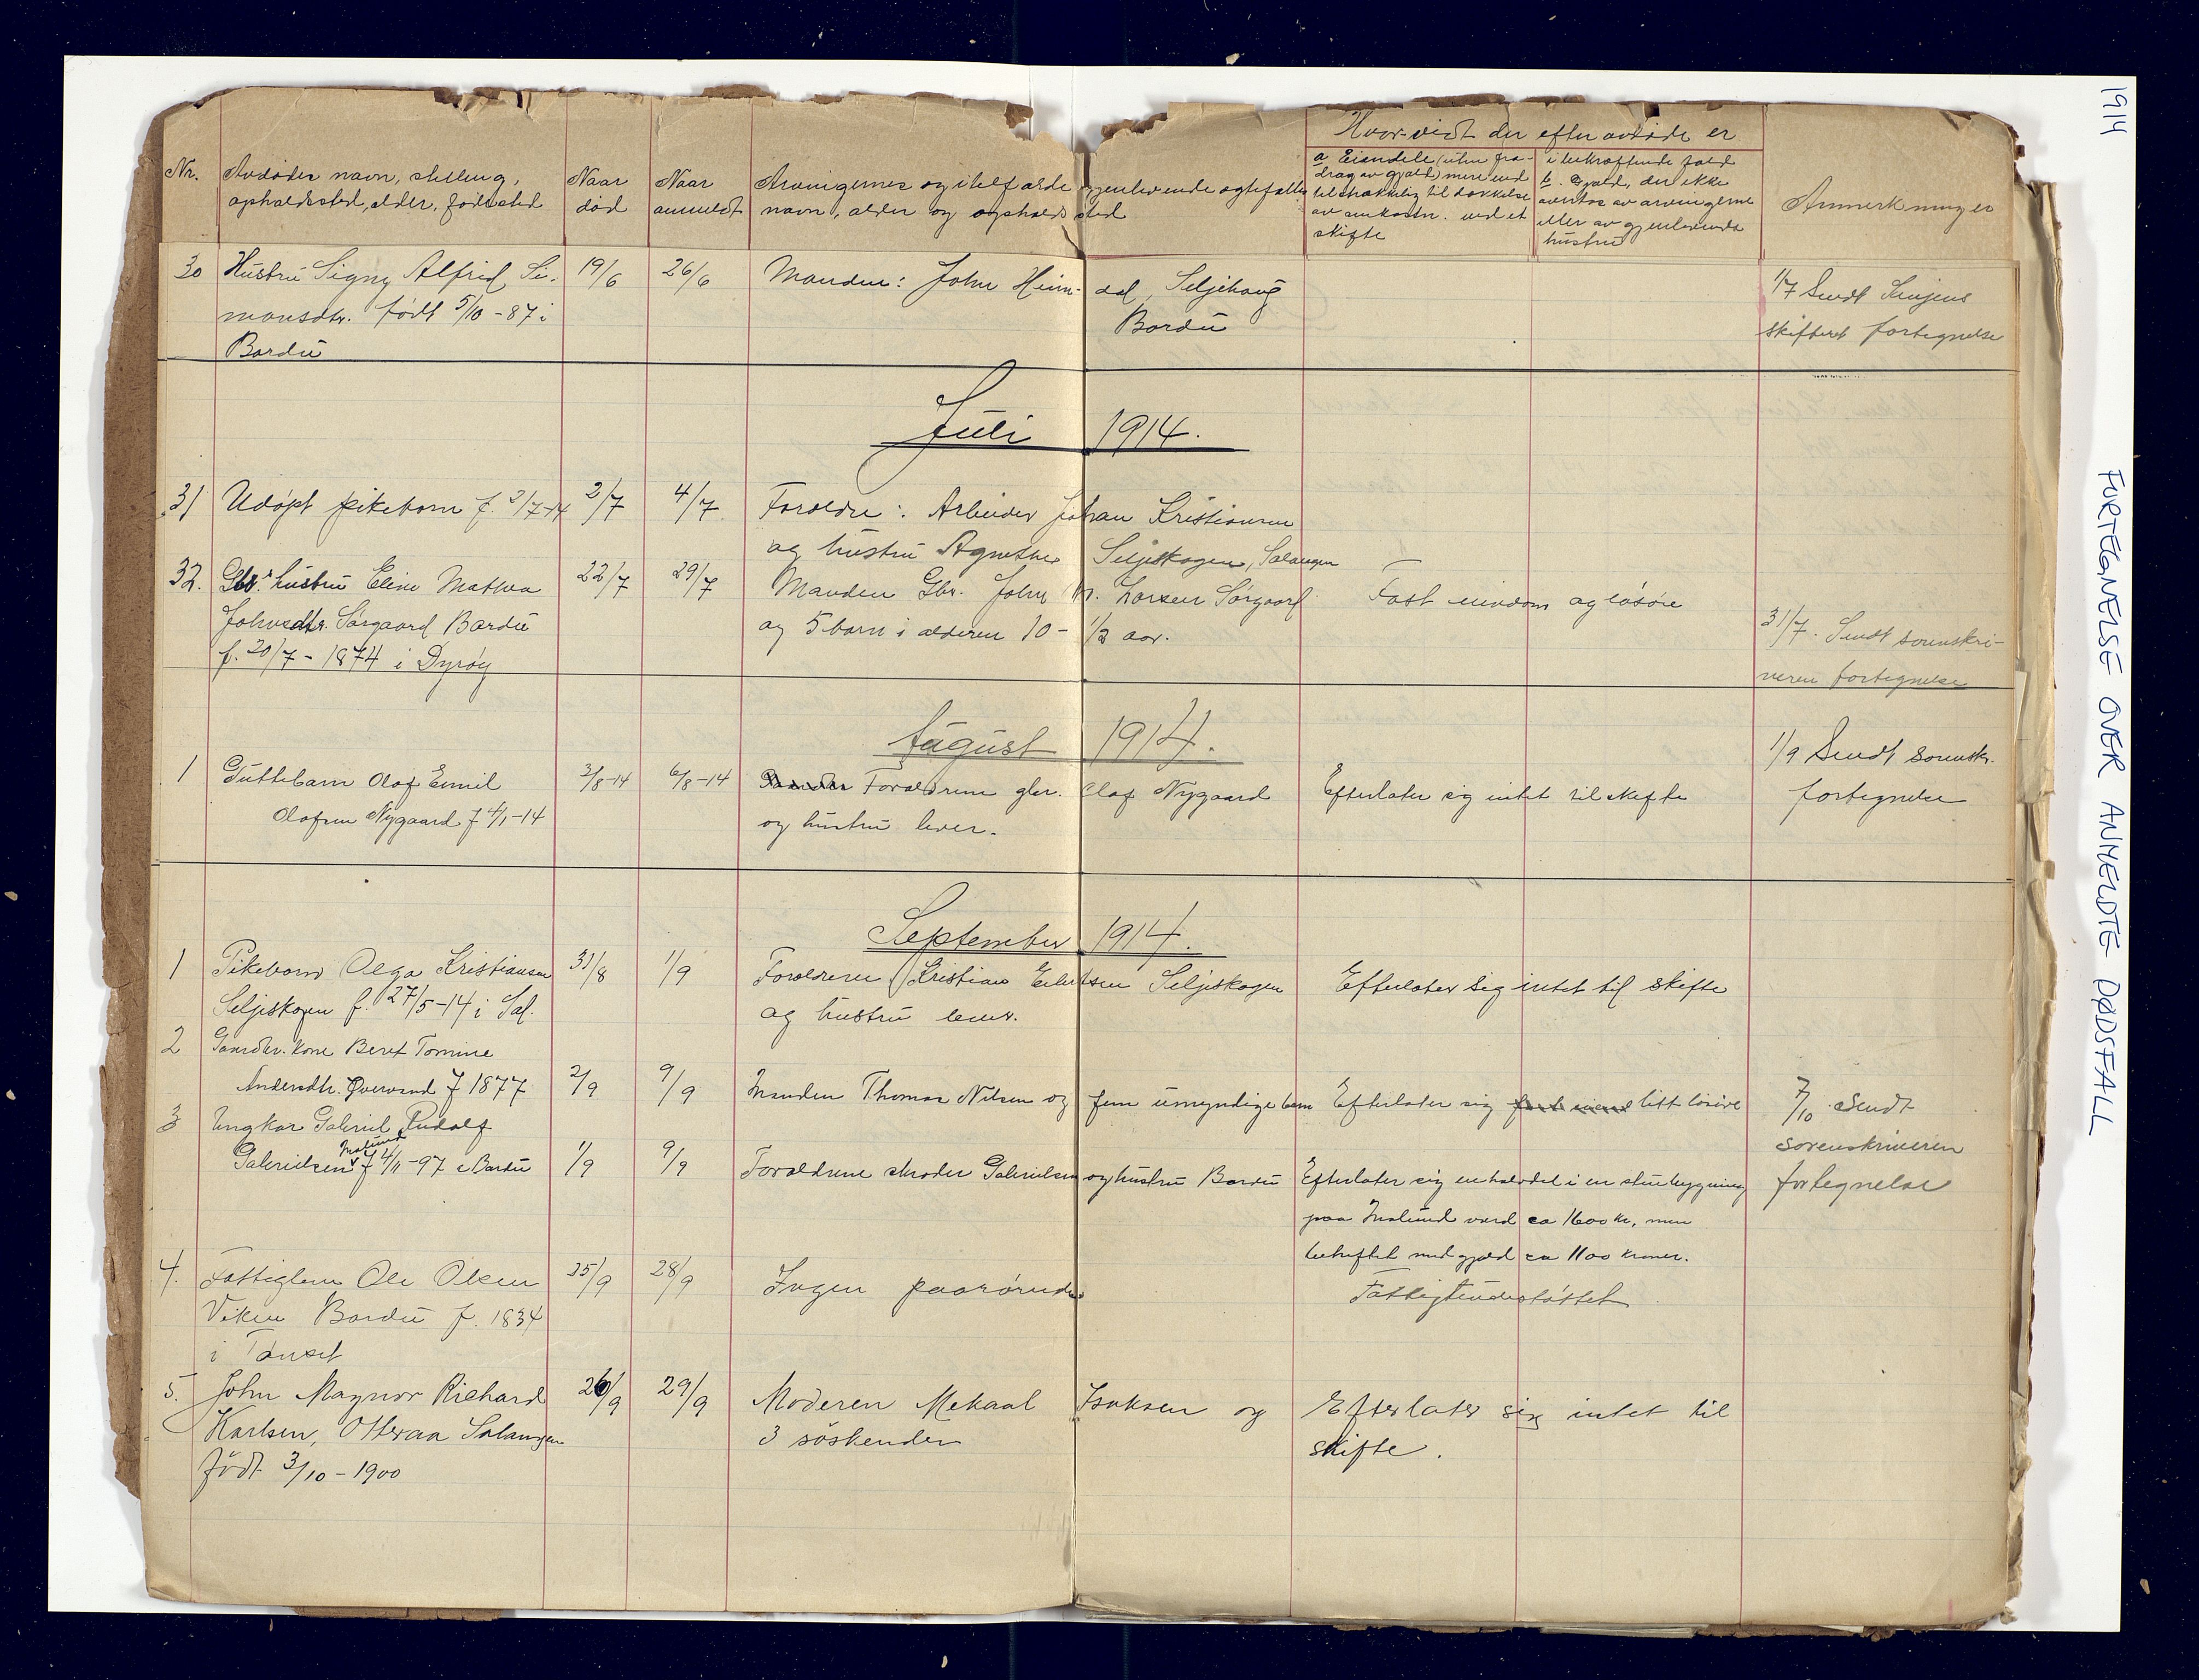 1914
FORTEGNELSE OVER ANMELDTE DØDSFALL
Nr.
Avdødes navn, stilling,
opholdssted, alder, fødested
Naar
død
Naar
anmeldt
Arvingernes og i tilfælde gjenlevende egtefælles
navn, alder og opholdssted
Hvorvidt der efter avdøde er
a Eiendele (uten fra-
drag av gjæld) mere end
tilstrækkelig til dækkelse
av omkostn. ved et
skifte
i bekræftende fald
b. Gjæld, der ikke
overtas av arvingerne
eller av gjenlevende
hustru
Anmerkninger
30
Hustru Signy Alfrid Si-
monsdtr. født 5/10-87 i
Bardu
19/6
26/6
Manden: John Heim-dal, Seljehaug
Bardu
1/7 Sendt Senjens
skifteret fortegnelse
Juli 1914.
31
Udøpt pikebarn f. 2/7-14
2/7
4/7
Foreldre: Arbeider Johan Kristiansen
og hustru Agnethe Seljeskogen, Salangen
32.
Gbr's hustru Eline Mathea
Johnsdtr. Sørgaard Bardu
f. 20/7-1874 i Dyrøy
22/7
29/7
Manden Gbr. John M. Larsen Sørgaard
og 5 barn i alderen 10-1/2 aar.
Fast eiendom og løsøre
31/7. Sendt sorenskri-
veren fortegnelse
August 1914.
1
Guttebarn Olaf Emil
Olafsen Nygaard f 4/1-14
3/8-14
6/8-14
Forældrene gbr. Olaf Nygaard
og hustru lever.
Efterlater sig intet til skifte
1/9 Sendt sorenskr.
fortegnelse
September 1914.
1
Pikebarn Olga Kristiansen
Seljeskogen f. 27/5-14 i Sal.
31/8
1/9
Forældrene Kristian Eilertsen Seljeskogen
og hustru lever.
Efterlater sig intet til skifte
2
Gaardbr. kone Beret Tomine
Andersdtr. Øvervand f 1877
2/9
9/9
Manden Thomas Nilsen og fem umyndige barn
Efterlater sig fast eiend litt løsøre
7/10. Sendt
sorenskriveren
fortegnelse
3
Ungkar Gabriel Rudolf
Gabrielsen Molund f 2/11-97 i Bardu
1/9
9/9
Forældrene skræder Gabrielsen og hustru Bardu
Efterlater sig en halvdel i en stuebygning
paa Molund værd ca 1600 kr, men
beheftet med gjæld ca 1100 kroner.
4.
Fattiglem Ole Olsen
Viken Bardu f. 1834
i Tønset
25/9
28/9
Ingen paarørende
Fattigunderstøttet
5.
John Magnor Richard
Karlsen, Otteraa Salangen
født 3/10-1900
26/9
29/9
Moderen Mekaal Isaksen og
3 søskender
Efterlater sig intet til
skifte.